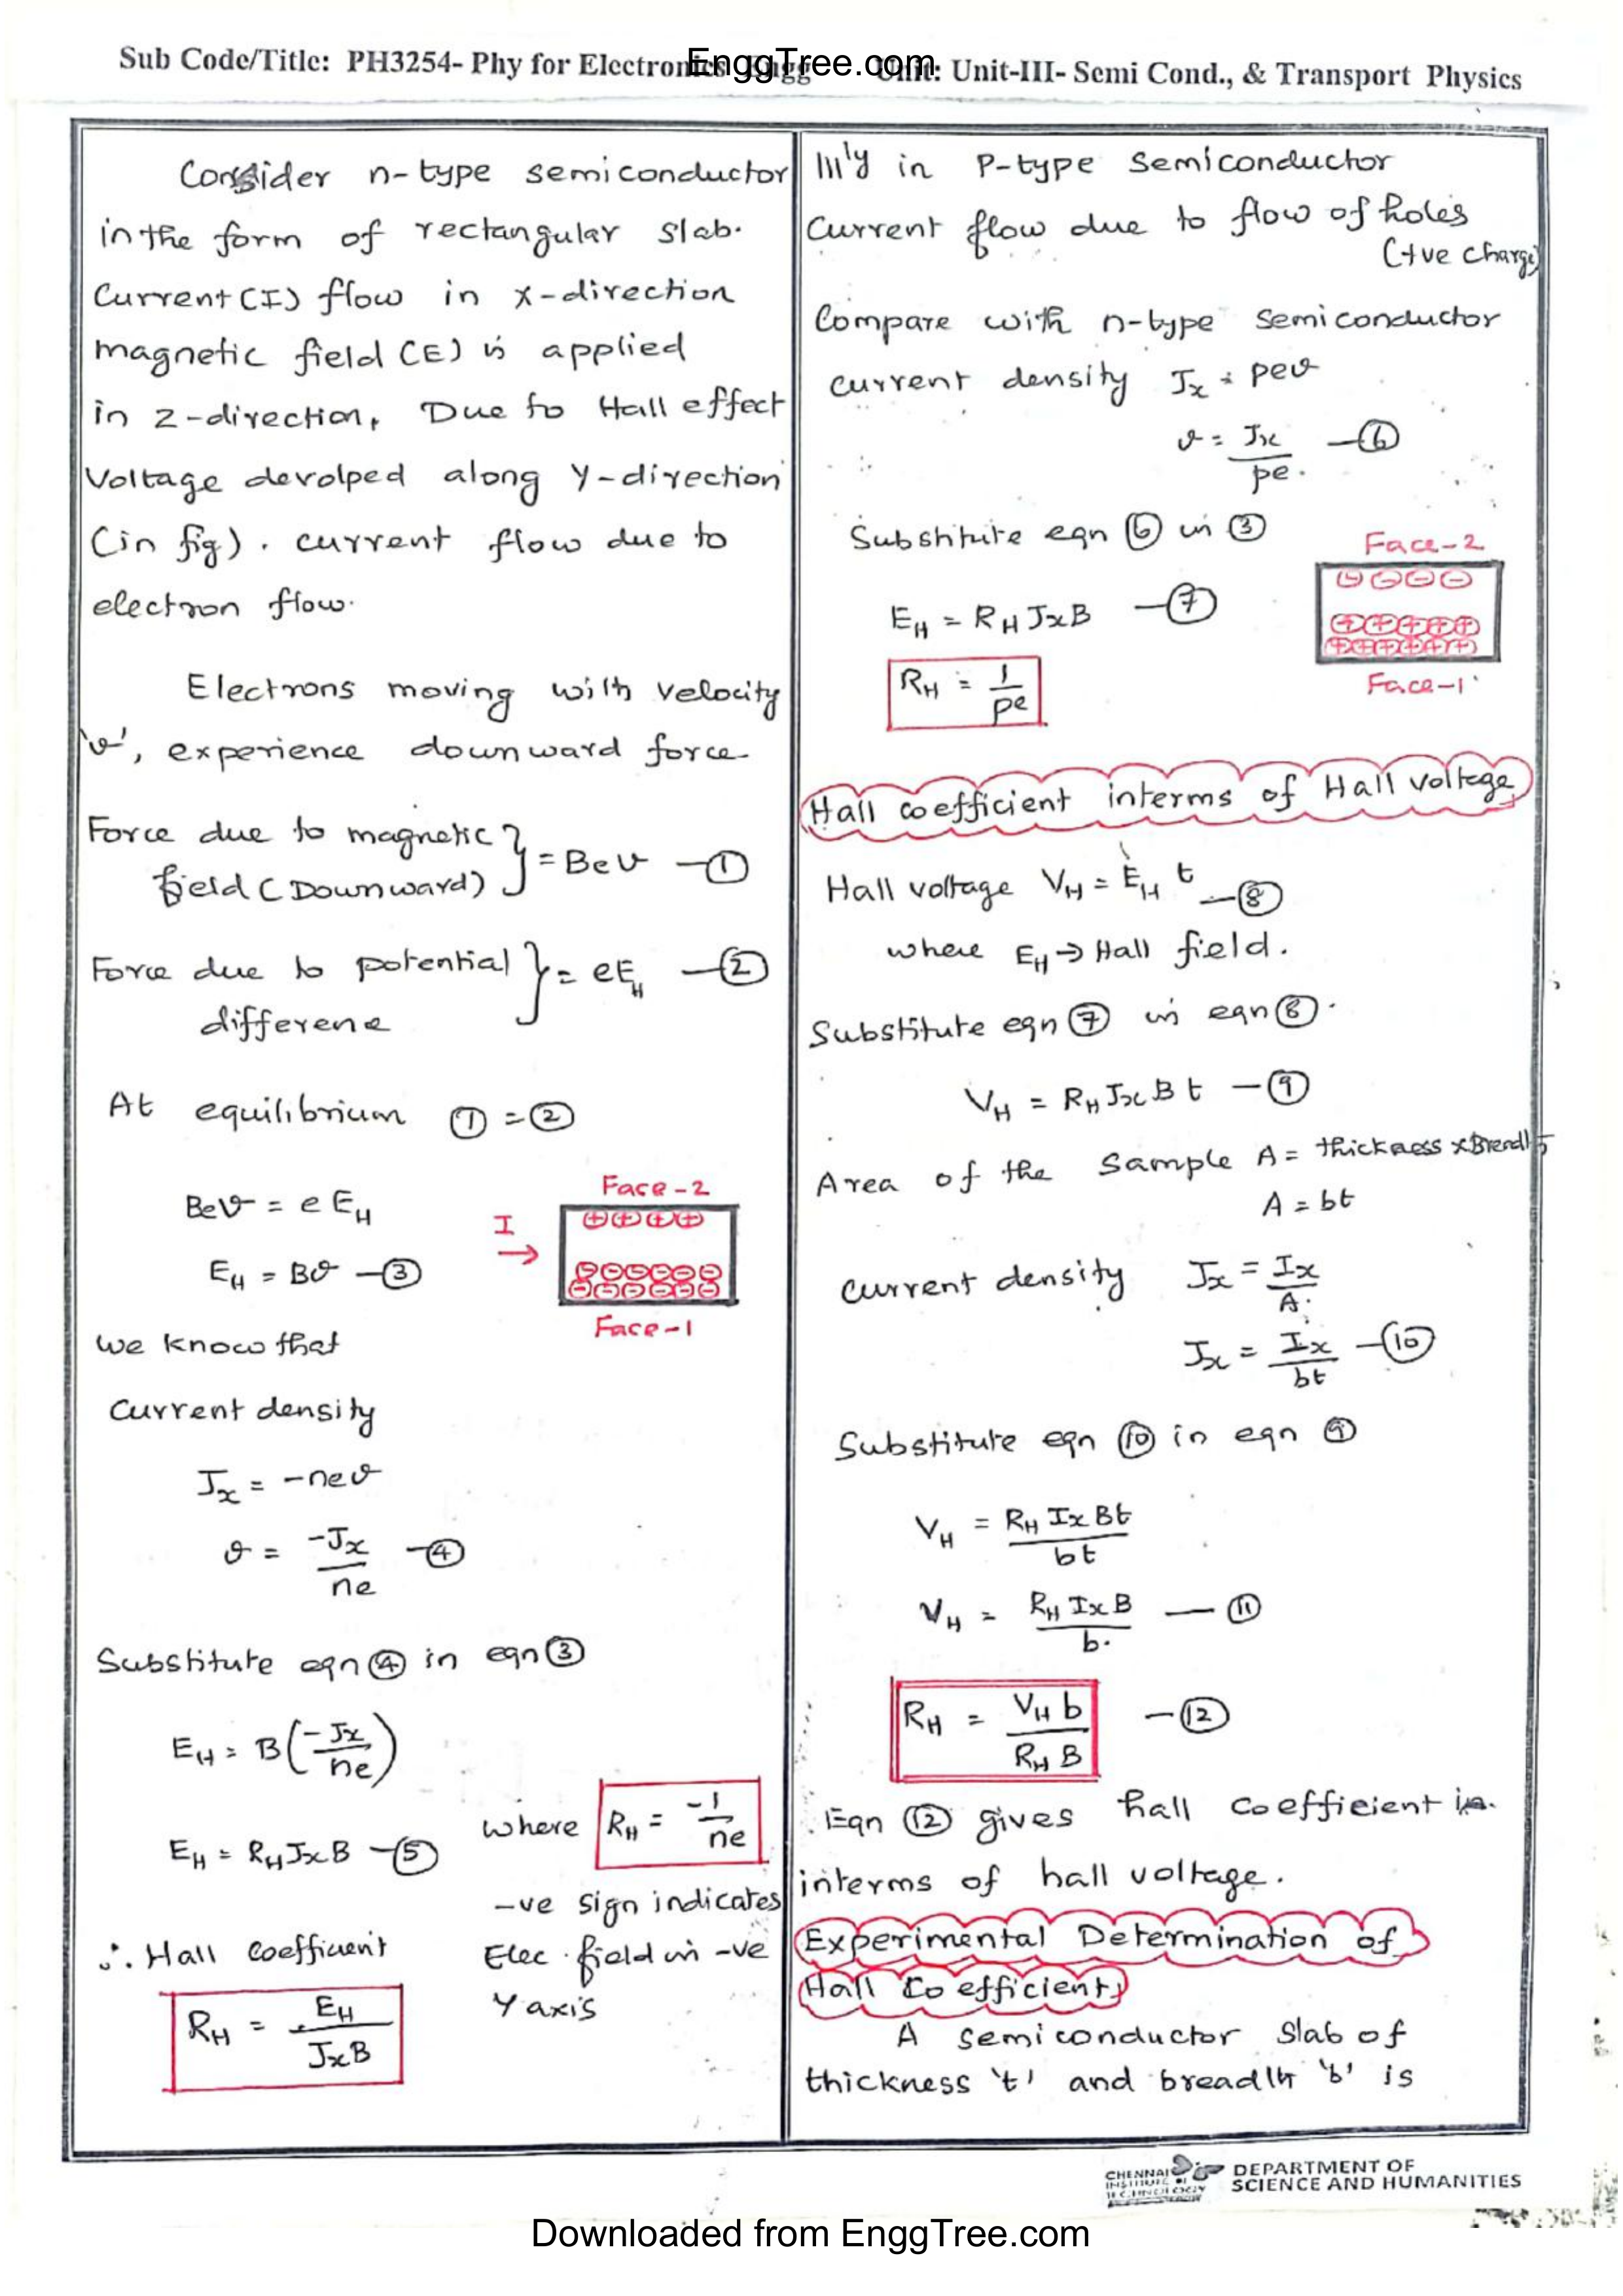 Sub Code/Title: PH3254- Phy for Electronics Engg Unit: Unit-III- Semi Cond., & Transport Physics
EnggTree.com
Consider n-type semiconductor
in the form of rectangular slab.
Current (I) flow in x-direction
magnetic field (E) is applied
in z-direction, Due to Hall effect
Voltage devolped along Y-direction
(in fig). current flow due to
electron flow.
Electrons moving with velocity
'v', experience downward force
Force due to magnetic
field (Downward) } = Bev —①
Force due to potential
differene } = eE_H —②
At equilibrium ① = ②
Bev = e E_H
E_H = Bv —③
Face-2
I →
⊕⊕⊕⊕
⊖⊖⊖⊖⊖⊖
⊖⊖⊖⊖⊖⊖
Face-1
we know that
Current density
J_x = -nev
v = -J_x / ne —④
Substitute eqn ④ in eqn ③
E_H = B(-J_x / ne)
E_H = R_H J_x B —⑤
where R_H = -1 / ne
-ve sign indicates
Elec. field in -ve
Y axis
∴ Hall coefficient
R_H = E_H / J_x B
|||'y in P-type semiconductor
Current flow due to flow of holes
(+ve charge)
Compare with n-type semiconductor
current density J_x = pev
v = J_x / pe. —⑥
Substitute eqn ⑥ in ③
E_H = R_H J_x B —⑦
R_H = 1 / pe
Face-2
⊖⊖⊖⊖
⊕⊕⊕⊕⊕
⊕⊕⊕⊕⊕⊕
Face-1
Hall coefficient interms of Hall voltage
Hall voltage V_H = E_H t —⑧
where E_H → Hall field.
Substitute eqn ⑦ in eqn ⑧.
V_H = R_H J_x B t —⑨
Area of the sample A = thickness x Breadth
A = bt
current density J_x = I_x / A.
J_x = I_x / bt —⑩
Substitute eqn ⑩ in eqn ⑨
V_H = R_H I_x B t / bt
V_H = R_H I_x B / b. —⑪
R_H = V_H b / R_H B —⑫
Eqn ⑫ gives hall coefficient in
interms of hall voltage.
Experimental Determination of
Hall Coefficient
A semiconductor slab of
thickness 't' and breadth 'b' is
CHENNAI
INSTITUTE OF
TECHNOLOGY
DEPARTMENT OF
SCIENCE AND HUMANITIES
Downloaded from EnggTree.com